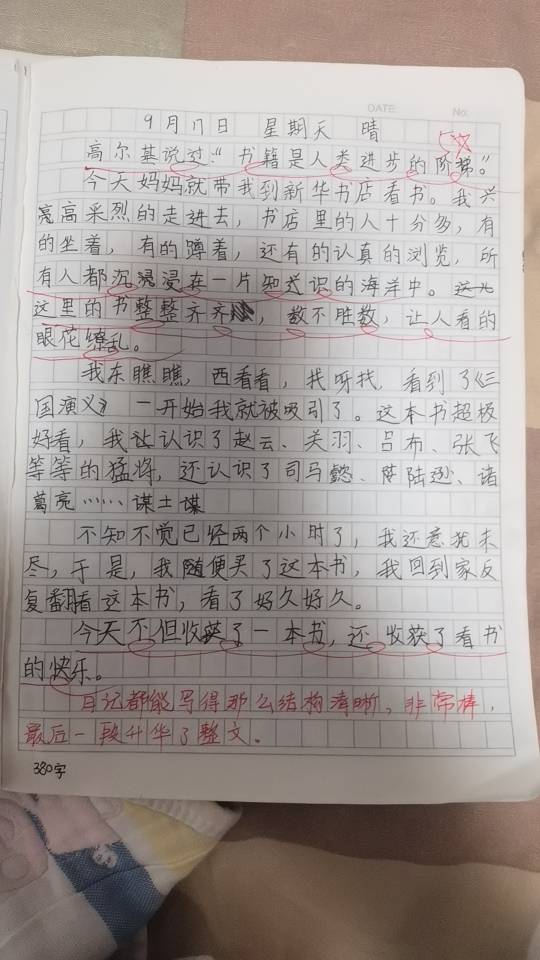 DATE: No:
9月17日 星期天 晴
5☆
高尔基说过:“书籍是人类进步的阶梯。”
今天妈妈就带我到新华书店看书。我兴
高采烈的走进去，书店里的人十分多，有
的坐着，有的蹲着，还有的认真的浏览，所
有人都沉浸在一片知识的海洋中。
这里的书整整齐齐，数不胜数，让人看的
眼花缭乱。
我东瞧瞧，西看看，找呀找，看到了《三
国演义》一开始我就被吸引了。这本书超极
好看，我让认识了赵云、关羽、吕布、张飞
等等的猛将，还认识了司马懿、陆逊、诸
葛亮……谋士谋
不知不觉已经两个小时了，我还意犹未
尽，于是，我随便买了这本书，我回到家反
复翻看这本书，看了好久好久。
今天不但收获了一本书，还收获了看书
的快乐。
日记都能写得那么结构清晰，非常棒，
最后一段升华了整文。
380字